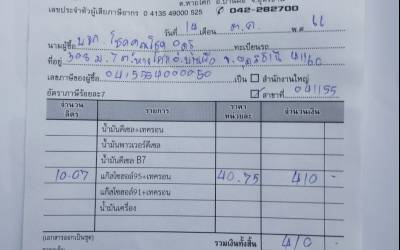 ต.หายโศก อ.บ้านผือ จ.อุดรธานี
เลขประจำตัวผู้เสียภาษีอากร 0 4135 49000 525 042-282700
วันที่ 14 เดือน ต.ค. พ.ศ. 66
นามผู้ซื้อ ทะเบียนรถ
ที่อยู่ 308 ม.7 41160
เลขภาษีของผู้ซื้อ เป็น สำนักงานใหญ่
อัตราภาษีร้อยละ7 สาขาที่ 041155
จำนวนลิตร รายการ ราคาหน่วยละ จำนวนเงิน
น้ำมันดีเซล+เทครอน
น้ำมันพาวเวอร์ดีเซล
น้ำมันดีเซล B7
10.07 แก๊สโซฮอล์95+เทครอน 40.75 410 -
แก๊สโซฮอล์91+เทครอน
น้ำมันเครื่อง
(เอกสารออกเป็นชุด) รวมเงินทั้งสิ้น 410 -